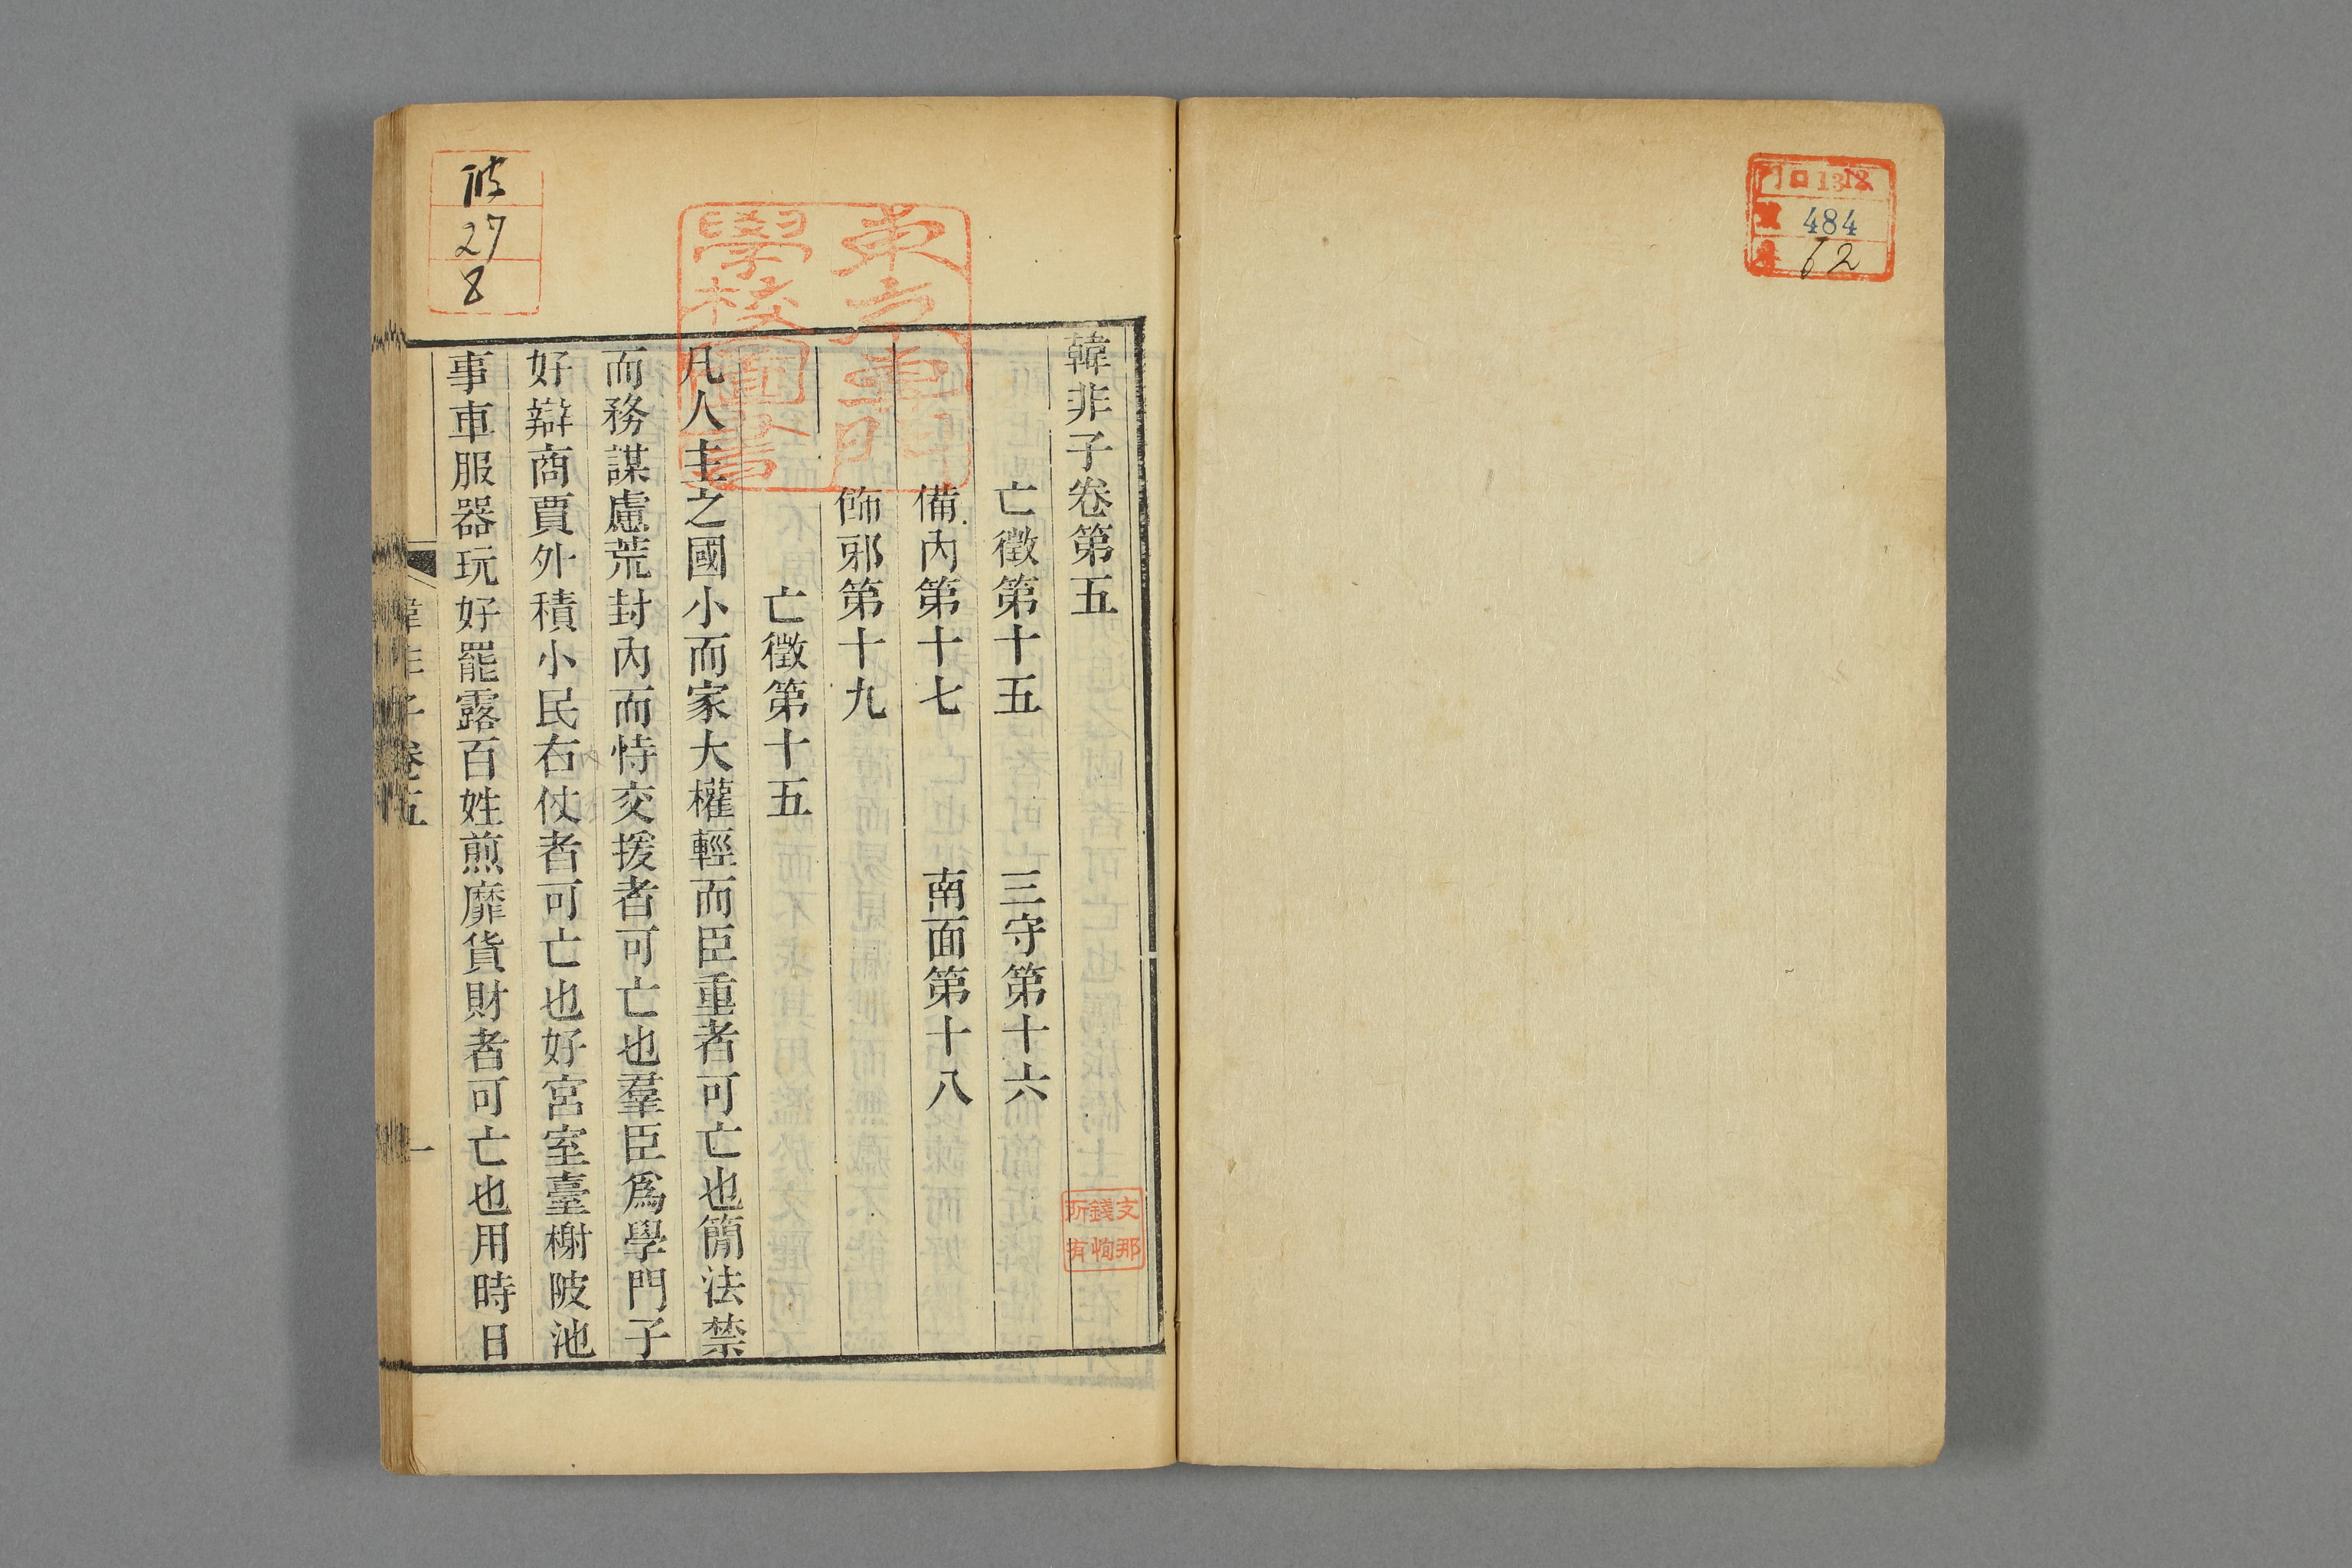 口 1312
484
62
韓非子卷第五
亡徵第十五 三守第十六
備內第十七 南面第十八
飾邪第十九
亡徵第十五
凡人主之國小而家大權輕而臣重者可亡也簡法禁
而務謀慮荒封內而恃交援者可亡也羣臣爲學門子
好辯商賈外積小民右仗者可亡也好宮室臺榭陂池
事車服器玩好罷露百姓煎靡貨財者可亡也用時日
韓非子卷五
一
支那
錢恂
所有
東京專門
學校圖書
27
8